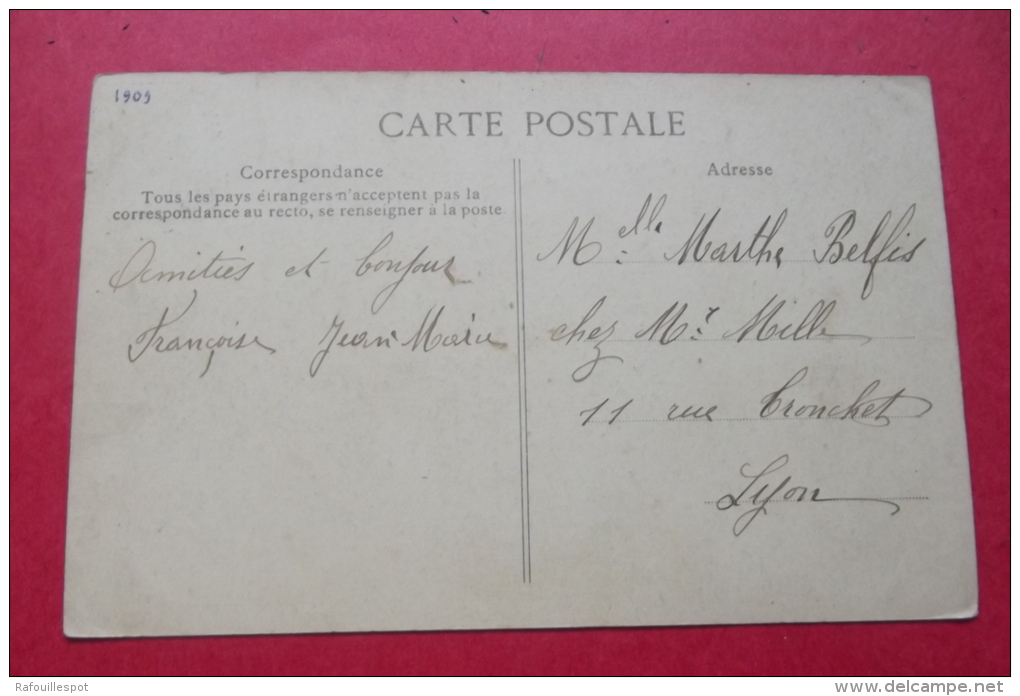 1909
CARTE POSTALE
Correspondance
Tous les pays étrangers n'acceptent pas la
correspondance au recto, se renseigner à la poste
Amitiés et bonjour
Françoise Jean Marie
Adresse
Melle Marthe Belfis
chez Mr Mille
11 rue Tronchet
Lyon
Rafouillespot
www.delcampe.net